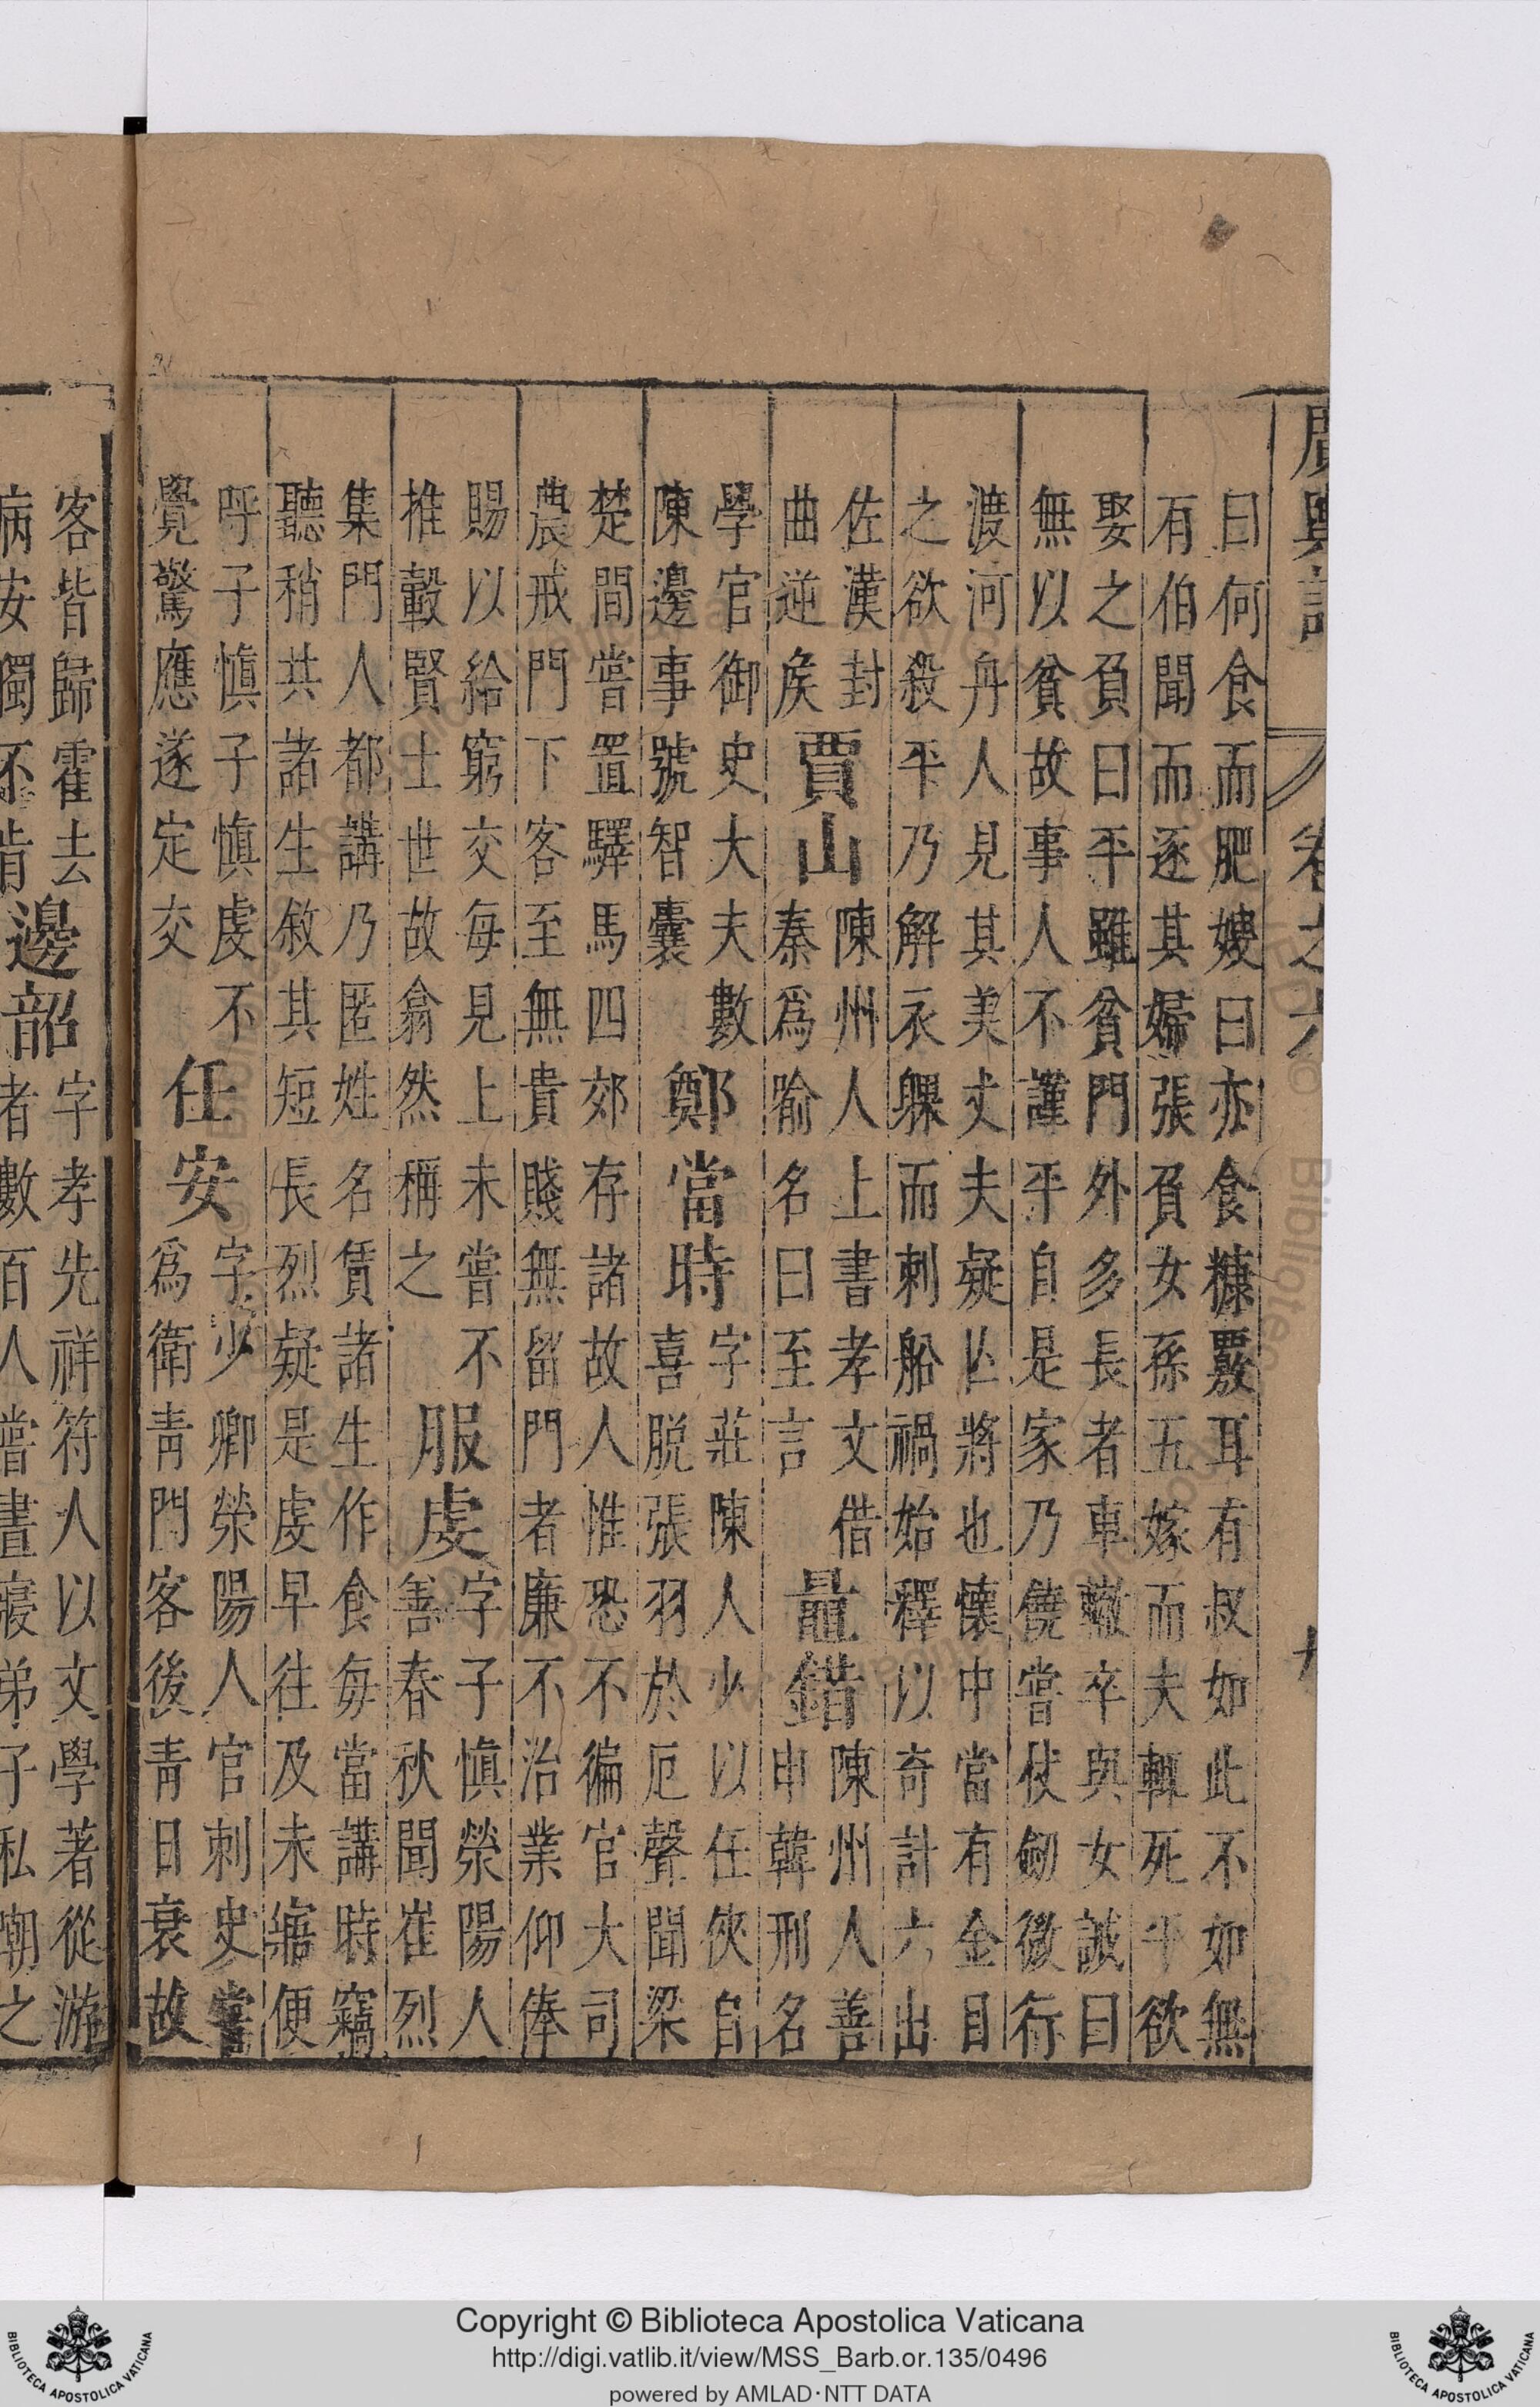 廣輿記 卷之六
曰何食而肥嫂曰亦食糠覈耳有叔如此不如無
有伯聞而逐其婦張負女孫五嫁而夫輒死平欲
娶之負曰平雖貧門外多長者車轍卒與女誡曰
無以貧故事人不謹平自是家乃饒嘗仗劒微行
渡河舟人見其美丈夫疑亾將也懷中當有金目
之欲殺平乃解衣躶而刺船禍始釋以奇計六出
佐漢封
曲逆矦
賈山
陳州人上書孝文借
秦爲喻名曰至言
鼂錯
陳州人善
申韓刑名
學官御史大夫數
陳邊事號智囊
鄭當時
字莊陳人少以任俠自
喜脱張羽於厄聲聞梁
楚間嘗置驛馬四郊存諸故人惟恐不徧官大司
農戒門下客至無貴賤無留門者廉不治業仰俸
賜以給窮交每見上未嘗不
推轂賢士世故翕然稱之
服虔
字子慎滎陽人
善春秋聞崔烈
集門人都講乃匿姓名賃諸生作食每當講時竊
聽稍共諸生敘其短長烈疑是虔早往及未寤便
呼子慎子慎虔不
覺驚應遂定交
任安
字少卿滎陽人官刺史嘗
爲衛青門客後青日衰故
客皆歸霍去
病安獨不肯
邊韶
字孝先祥符人以文學著從游
者數百人嘗晝寢弟子私嘲之
Copyright © Biblioteca Apostolica Vaticana
http://digi.vatlib.it/view/MSS_Barb.or.135/0496
powered by AMLAD·NTT DATA
BIBLIOTECA APOSTOLICA VATICANA
BIBLIOTECA APOSTOLICA VATICANA